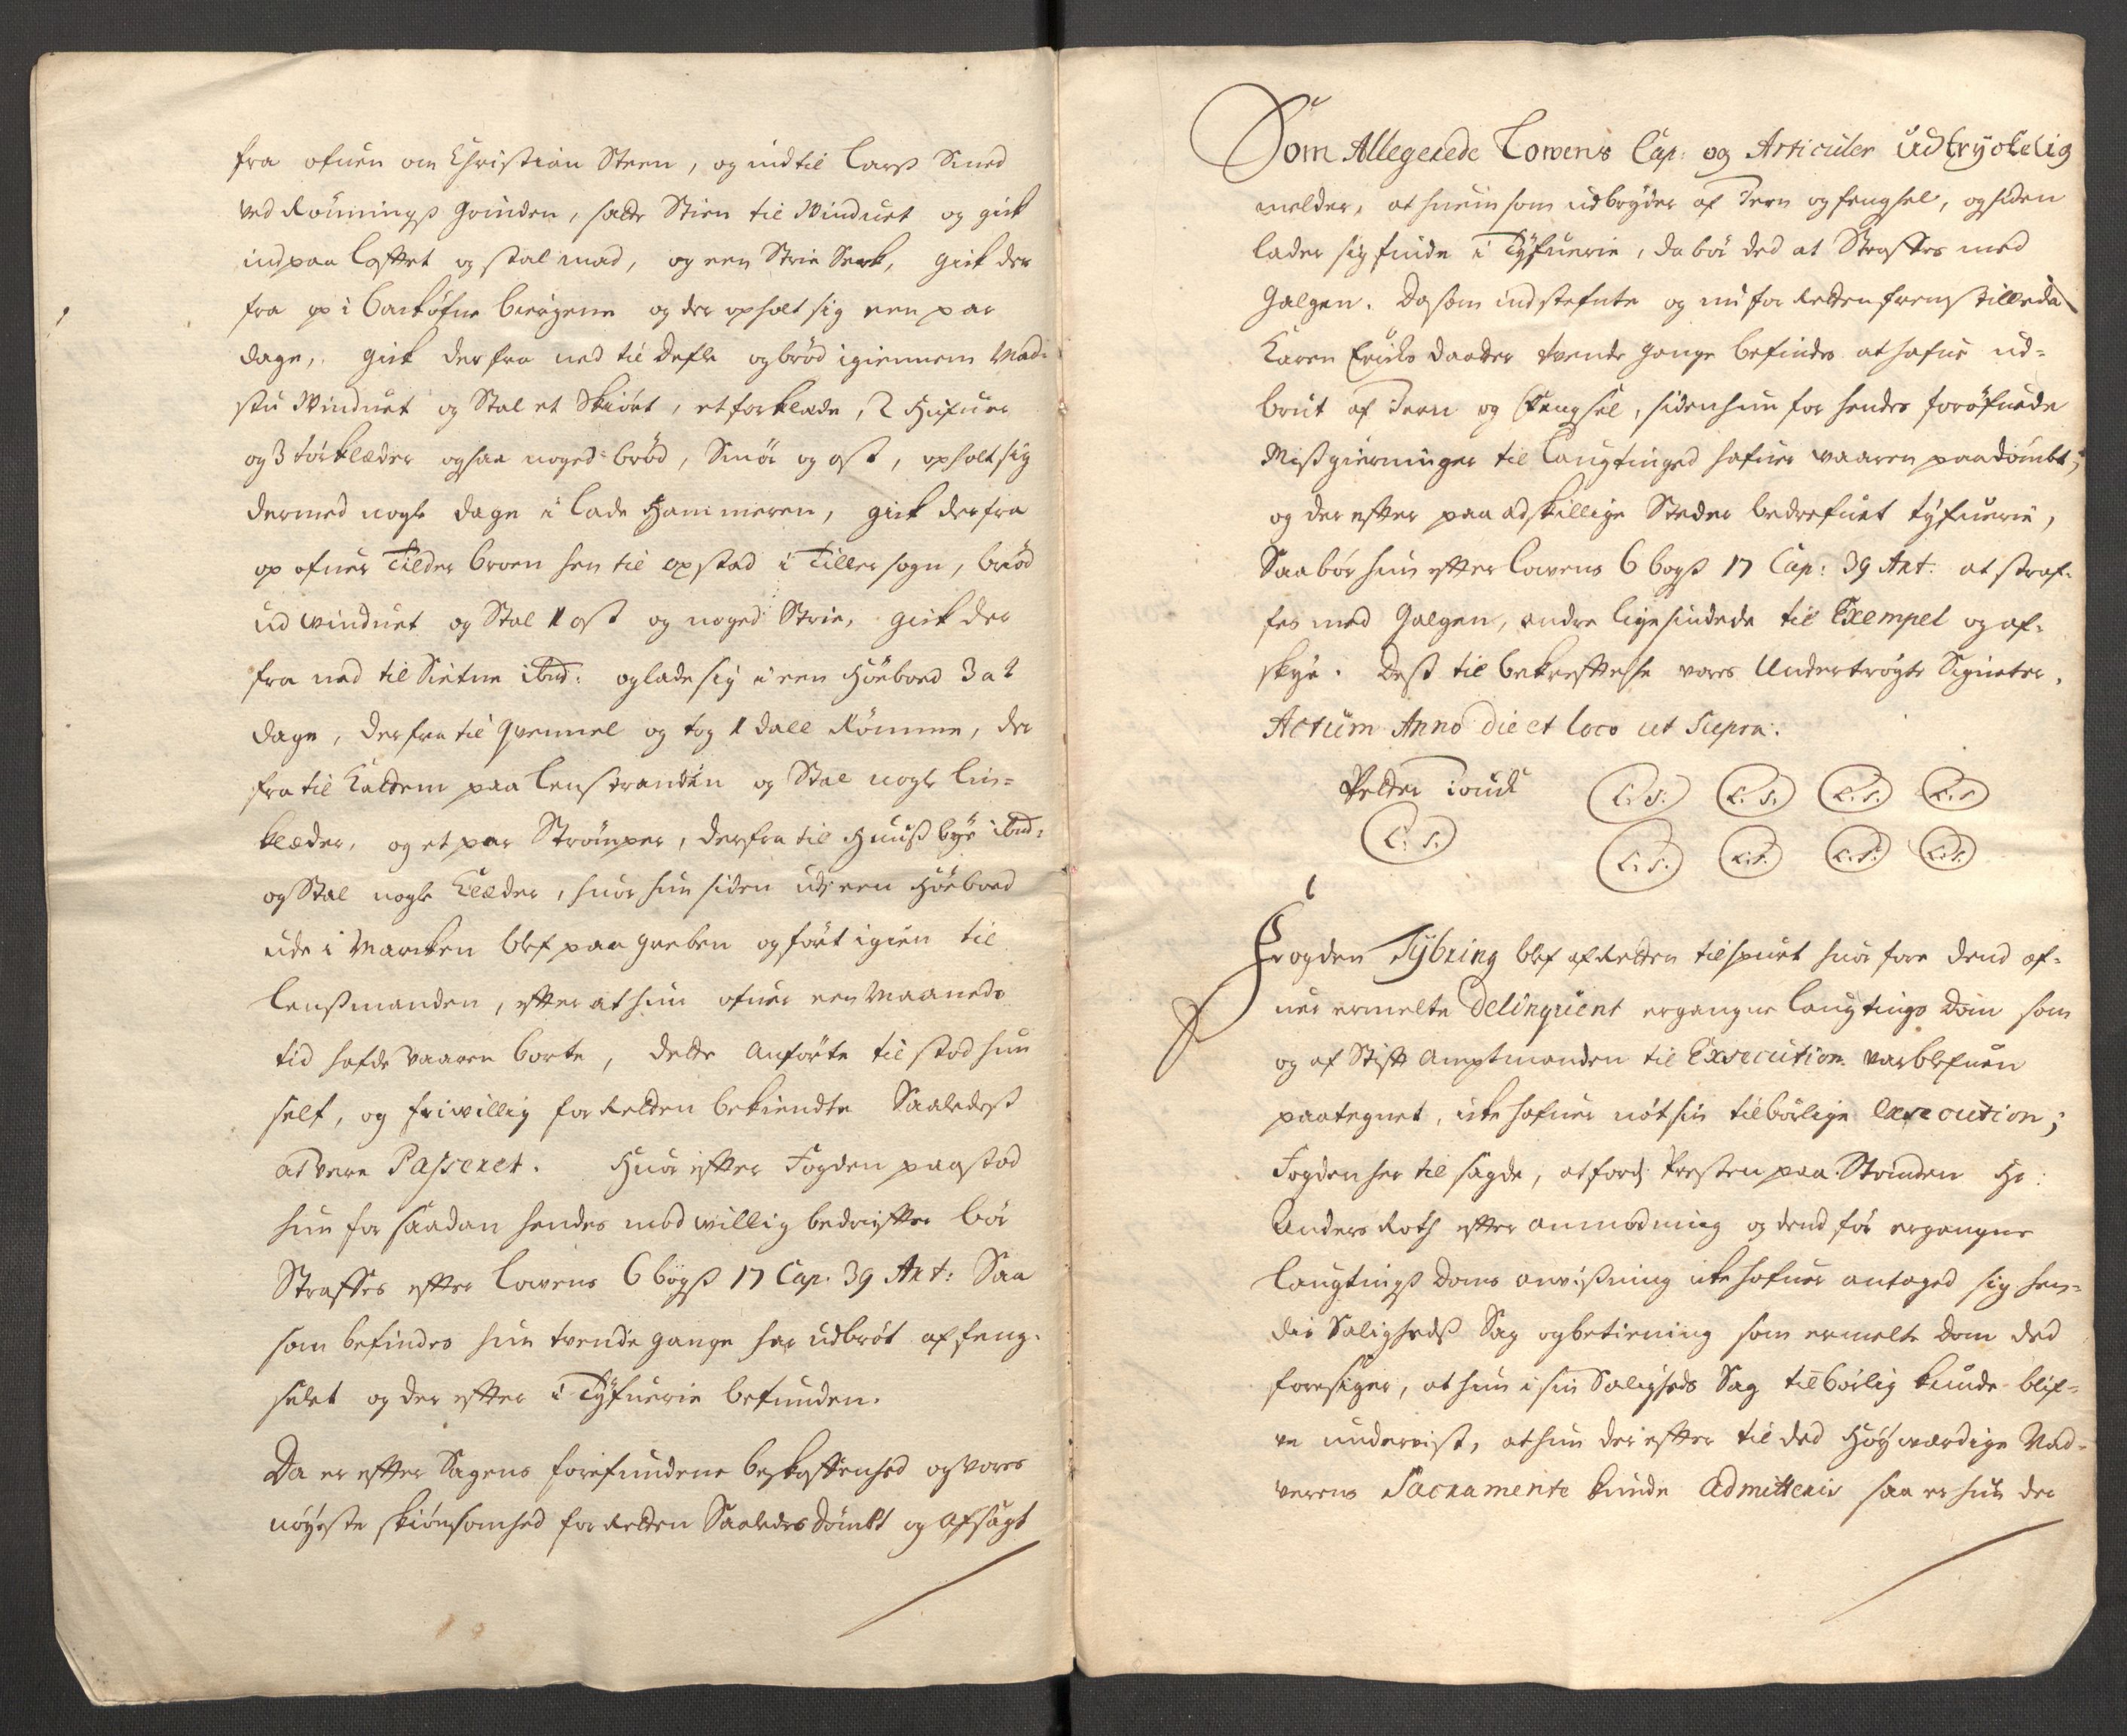 fra ofuen om Christian Steen, og ind til Larß Smed
ved Rönningß Grinden, satte Stien til Winduet og gick
ind paa loftet og stal mad, og een Strie Serk, gick der
fra op i Barköfne biergene og der opholt sig een par
dage, gick der fra ned til Defle og bröd igiennem Mad-
stu Winduet og Stal et Skiört, et forklæde, 2 Hufuer
og 3 törklæder og saa noged bröd, Smör og ost, opholt sig
dermed nogle dage i Lade Hammeren, gick derfra
op ofuer Tilder broen hen til opstad i Tiller sogn, bröd
ud winduet og Stal 1 ost og noged Strie, gick der
fra ned til Sietne ibid: og lade sig i een Höeboed 3 a 4
dage, derfra til Quennel og tog 1 dall Römme, der
fra til Kaltem paa Lenstranden og Stal nogle lin-
klæder, og et par Strömper, derfra til Huußbye ibid:
og Stal nogle Klæder, huor hun siden udj een Höeboed
ude i Marcken blef paagreben og fört igien til
Lenßmanden, efter at hun ofuer een Maaneds
tid hafde vaaren borte, dette Anförte tilstod hun
self, og friwillig for Retten bekiendte Saaledeß
at vere Passeret. Huor efter Fogden paastod
hun for saadan hendes modwillig bedrifter bör
Straffes efter Lowens 6 bogß 17 Cap: 39 Art: Saa
som befindes hun tvende gange har udbröt af feng-
selet og der efter i Tyfuerie befunden.
Da er efter Sagens forefundene beskaffenhed og vores
nöyeste skiönsomhed for Retten Saaledes dömbt og Afsagt
Som Allegerede Lowens Cap: og Articuler udtryckelig
melder, at huem som udbryder af Jern og fengsel, og siden
lader sig finde i Tyfuerie, da bör ded at Straffes med
Galgen. Da som indstefnte og nu for Retten fremstillede
Karen Erichs daatter tvende gange befindes at hafue ud-
brut af Jern og Fengsel, siden hun for hendes foröfuede
Mißgierninger til Laugtinged hafuer vaaren paadömbt,
og der efter paa adskillige Steder bedrefuet tyfuerie,
Saa bör hun efter Lowens 6 bogß 17 Cap: 39 Art: at straf-
fes med Galgen, andre ligesindede til Exempel og af-
skye. Deß til bekreftelse vores Undertrögte Signeter.
Actum Anno die et loco ut Supra:
Petter Touch L. S. L. S. L. S. L. S.
L. S. L. S. L. S. L. S. L. S.
Fogden Tybring blef af Retten tilspurt huor fore dend of-
uer ermelte Delinquent ergangne Laugtings Dom som
og af Stift Amptmanden til Execution var blefuen
paategnet, icke hafuer nöt sin tilbörlige Execution;
Fogden her til sagde, at fordj Presten paa Strinden Hr:
Anders Roth efter anmodning og dend för ergangne
Laugtingß Doms anvißning icke hafuer antaged sig hen-
dis Saligheds Sag og betiening som ermelte Dom ded
foresiger, at hun i sin Saligheds Sag tilbörlig kunde blif-
ve underwist, at hun der efter til ded Höywærdige Nad-
verens Sacramente kunde Admitteris saa er hun der